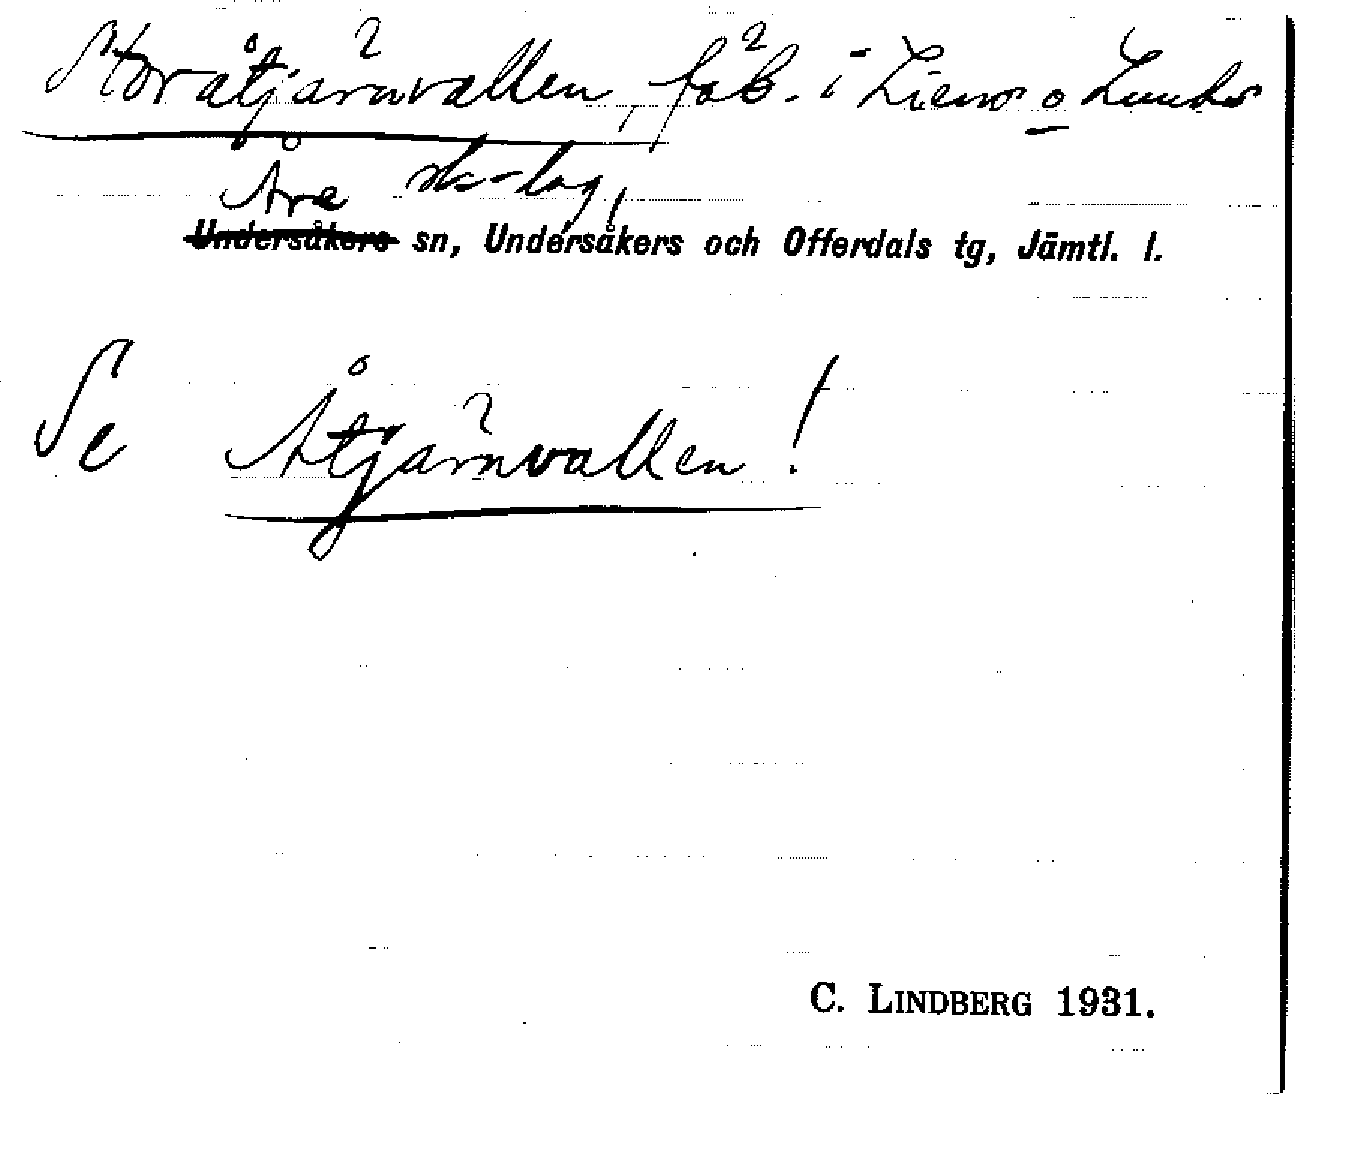 Storåtjärnvallen, fäb. i Liens o Lunds
Åre sk-lag,
Undersåkers sn, Undersåkers och Offerdals tg, Jämtl. l.
Se Åtjärnvallen!
C. LINDBERG 1931.